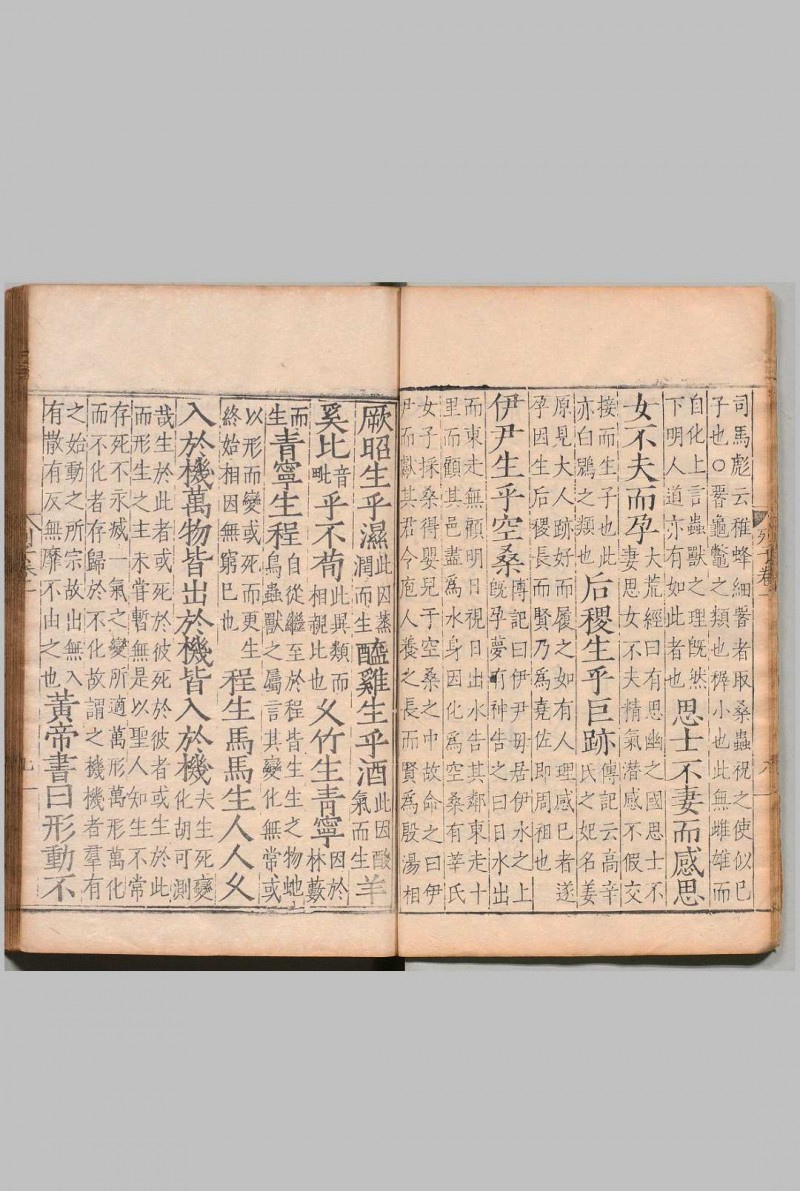 司馬彪云稚蜂細者取桑蟲視之使似已
子也○龜鼈之類也稺小也此無雌雄而
自化上言蟲獸之理旣然下明人道亦有如此者也思士不妻而感思
女不夫而孕大荒經曰有思幽之國思士不妻思女不夫精氣潛感不假交
接而生子也此亦白鶂之類也后稷生乎巨跡傳記云高辛氏之妃名姜
原見大人跡好而履之如有人理感已者遂
孕因生后稷長而賢乃爲堯佐即周祖也
伊尹生乎空桑傳記曰伊尹母居伊水之上旣孕夢有神告之曰臼水出
而東走無顧明日視臼出水告其鄰東走十
里而顧其邑盡爲水身因化爲空桑有莘氏
女子採桑得嬰兒于空桑之中故命之曰伊
尹而獻其君令庖人養之長而賢爲殷湯相
厥昭生乎濕此因蒸潤而生醯雞生乎酒此因酸氣而生羊
奚比音毗乎不荀此異類而相親比也乆竹生青寧因於林藪
而生青寧生程自從繼至於程皆生生之物虵鳥蟲獸之屬言其變化無常或
以形而變或死而更生終始相因無窮已也程生馬馬生人人乆
入於機萬物皆出於機皆入於機夫生死變化胡可測
哉生於此者或死於彼死於彼者或生於此
而形生之主未嘗暫無是以聖人知生不常
存死不永滅一氣之變所適萬形萬形萬化
而不化者存歸於不化故謂之機機者羣有
之始動之所宗故出無入有散有反無靡不由之也黃帝書曰形動不